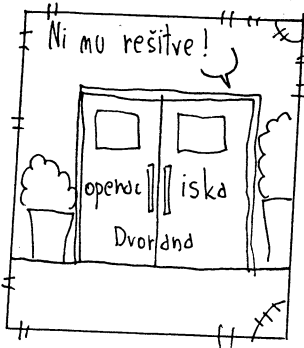 Ni mu rešitve!
operac iska
Dvorana